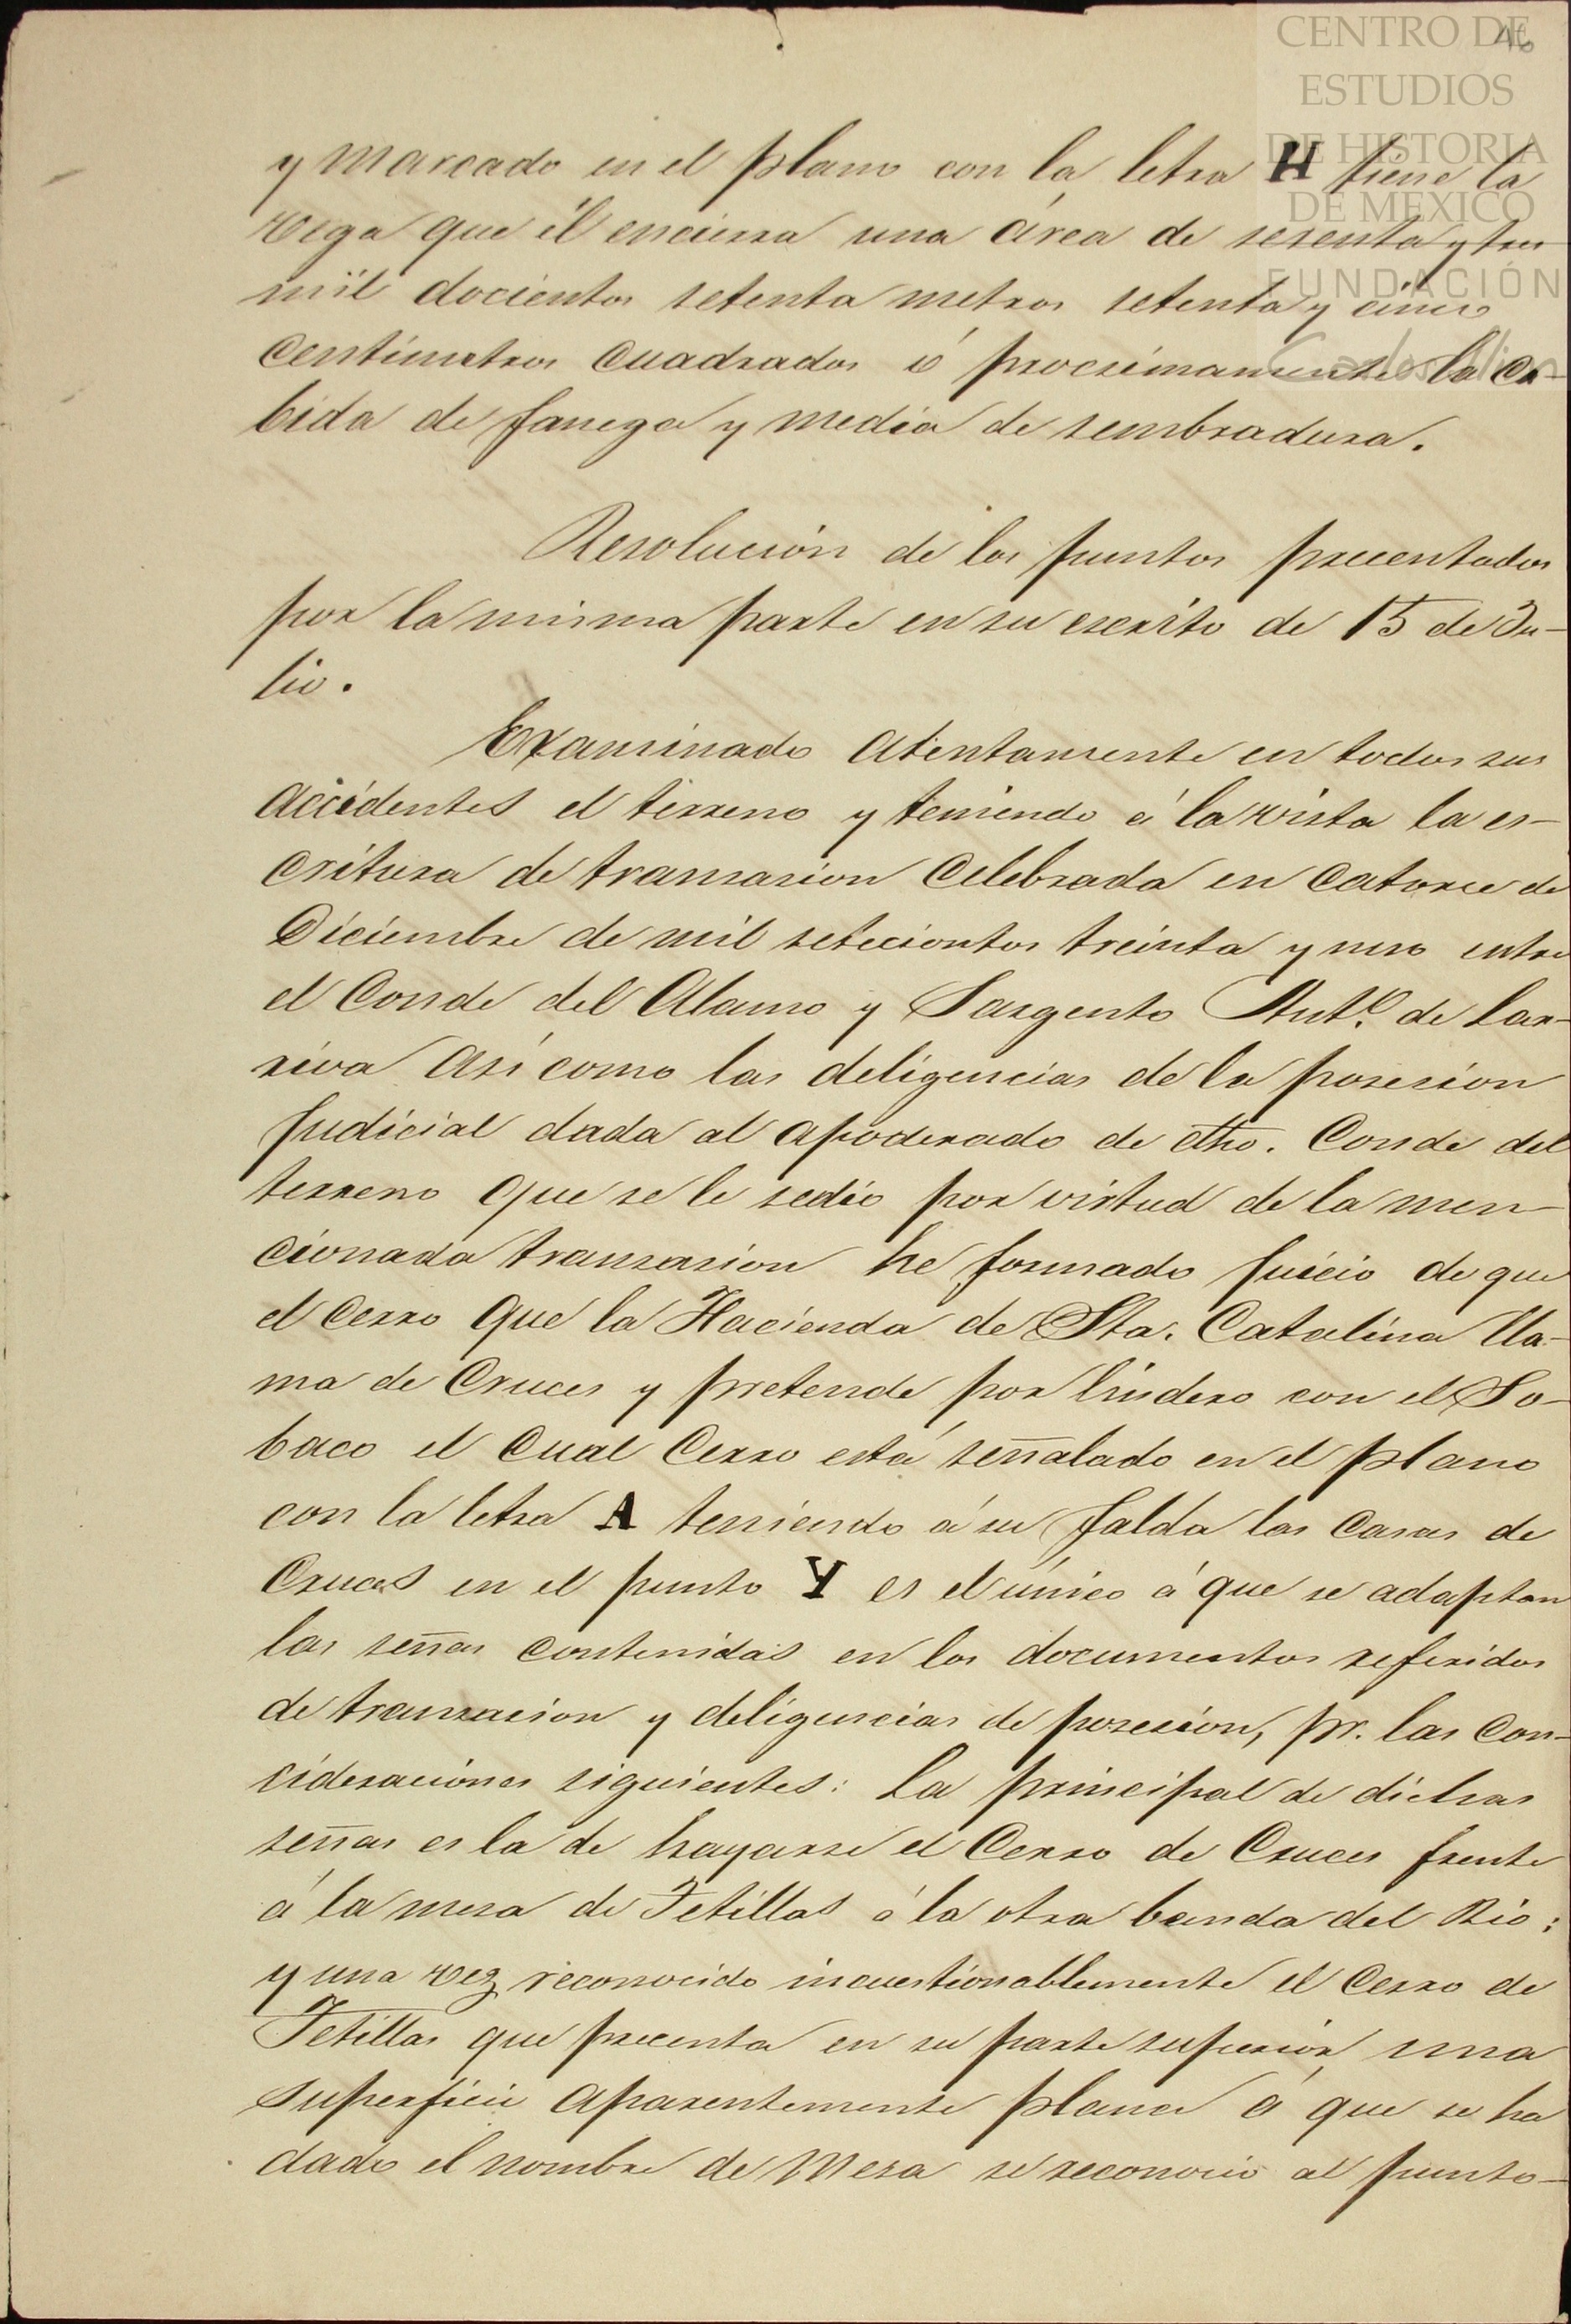 CENTRO DE
ESTUDIOS
DE HISTORIA
DE MEXICO
FUNDACIÓN
Carlos Slim
46
y marcado en el plano con la letra H tiene la
vega que él encierra una área de sesenta y tres
mil docientos setenta metros setenta y cinco
centimetros cuadrados ó procsimamente la ca-
bida de fanega y media de sembradura.
Resolución de los puntos precentados
por la misma parte en su escrito de 15 de Ju-
lio.
Examinado atentamente en todos sus
accidentes el terreno y teniendo á la vista la es-
critura de transasion celebrada en catorce de
Diciembre de mil setecientos treinta y uno entre
el Conde del Alamo y Sargento Antº. de Lar-
riva así como las deligencias de la posesion
judicial dada al apoderado de dho. Conde del
terreno que se le sedió por virtud de la men-
cionada transasion he formado juicio de que
el cerro que la Hacienda de Sta. Catalina lla-
ma de Cruces y pretende por lindero con el So-
baco el cual Cerro está señalado en el plano
con la letra A teniendo á su falda las casas de
Cruces en el punto Y es el único á que se adaptan
las señas contenidas en los documentos referidos
de transasion y deligencias de posesion, pr. las con-
cideraciones siguientes: La principal de dichas
señas es la de hayarse el Cerro de Cruces frente
á la mesa de Tetillas á la otra banda del Rio:
y una vez reconocido incuestionablemente el Cerro de
Tetillas que precenta en su parte superior una
superficie aparentemente plana á que se ha
dado el nombre de Mesa se reconoció al punto-